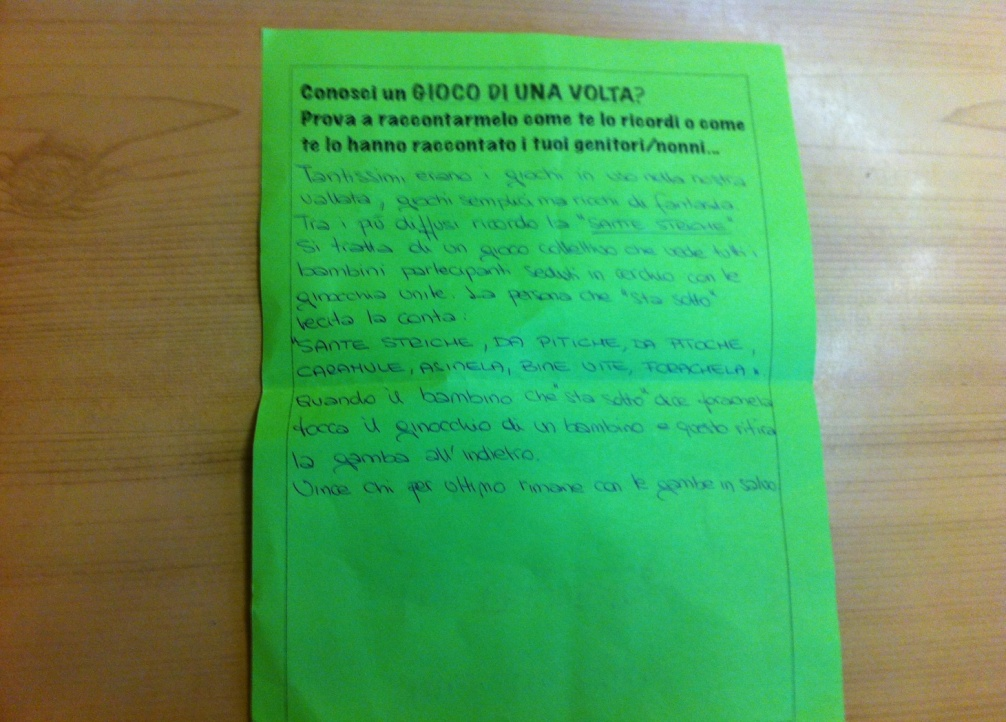 Conosci un GIOCO DI UNA VOLTA?
Prova a raccontarmelo come te lo ricordi o come
te lo hanno raccontato i tuoi genitori/nonni...
Tantissimi erano i giochi in uso nella nostra
vallata, giochi semplici ma ricchi di fantasia.
Tra i più diffusi ricordo la "SANTE STRICHE"
Si tratta di un gioco collettivo che vede tutti i
bambini partecipanti seduti in cerchio con le
ginocchia unite. La persona che "sta sotto"
recita la conta:
"SANTE STRICHE, DA PITICHE, DA PITOCHE,
CARAMULE, ASINELA, BINE VITE, FORACHELA"
Quando il bambino che "sta sotto" dice forachela
tocca il ginocchio di un bambino e questo ritira
la gamba all'indietro.
Vince chi per ultimo rimane con le gambe in salvo